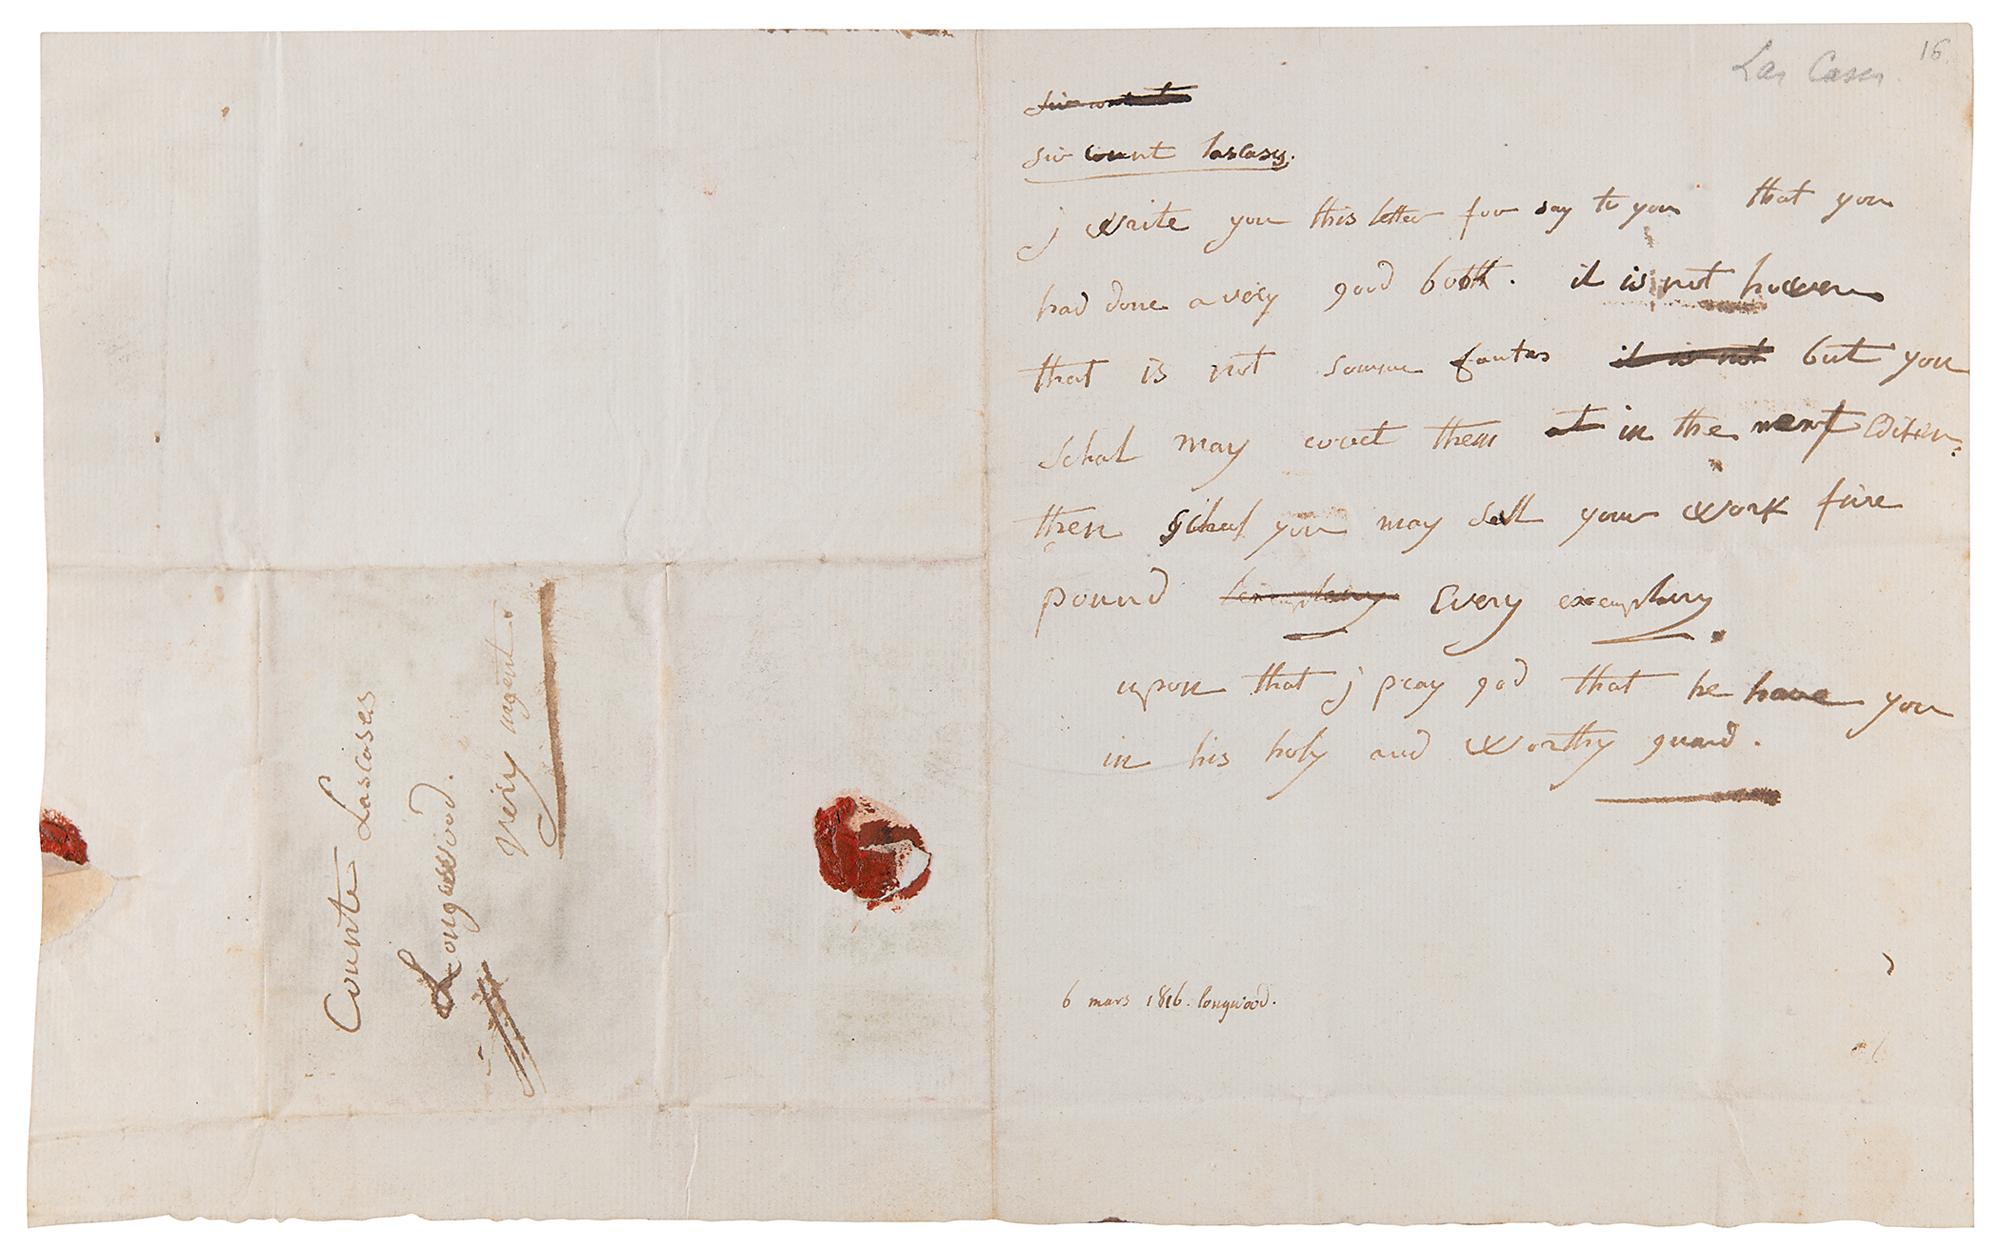 Las Cases 16
sir count
sir count lascases.
j write you this letter for say to you that you
had done a very good book. it is not however
that is not somme fautes it is not but you
schal may corect them at in the next Edition.
then schal you may sell your work five
pound l'exemplary Every exemplary.
upon that j pray god that he have you
in his holy and worthy guard.
6 mars 1816. longwood.
Counte Lascases
Longwood.
very urgent.